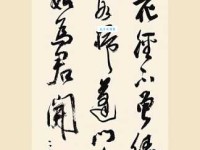 花徑不曾緣
客掃蓬門
始為君開